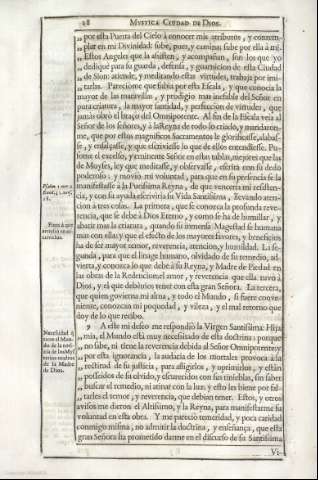 18 MYSTICA CIUDAD DE DIOS.
por esta Puerta del Cielo à conocer mis atributos, y contem-
plar en mi Divinidad: sube, pues, y camina; sube por ella à mi.
Estos Angeles que la assisten, y acompañan, son los que yo
dediquè para su guarda, defensa, y guarnicion de esta Ciudad
de Sion: atiende, y meditando estas virtudes, trabaja por imi-
tarlas. Pareciòme que subia por esta Escala, y que conocia la
mayor de las maravillas, y prodigio mas inefable del Señor en
pura criatura, la mayor santidad, y perfeccion de virtudes, que
jamàs obrò el brazo del Omnipotente. Al fin de la Escala veìa al
Señor de los Señores, y à la Reyna de todo lo criado, y mandaron-
me, que por estos magnificos Sacramentos le glorificasse, alabas-
se, y ensalçasse, y que escriviesse lo que de ellos entendiesse. Pu-
some el excelso, y eminente Señor en estas tablas, mejores que las
de Moyses, ley que meditasse, y observasse, escrita con su dedo
poderoso: y moviò mi voluntad, para que en su presencia se la
manifestasse à la Purissima Reyna, de que venceria mi resisten-
cia, y con su ayuda escriviria su Vida Santissima, llevando aten-
cion à tres cosas. La primera, que se conozca la profunda reve-
rencia, que se debe à Dios Eterno, y como se ha de humillar, y
abatir mas la criatura, quando su inmensa Magestad se humana
mas con ella: y que el efecto de los mayores favores, y beneficios,
ha de ser mayor temor, reverencia, atencion, y humildad. La se-
gunda, para que el linage humano, olvidado de su remedio, ad-
vierta, y conozca lo que debe à su Reyna, y Madre de Piedad en
las obras de la Redencion: el amor, y reverencia que ella tuvo à
Dios, y el que debèmos tener con esta gran Señora. La tercera,
que quien govierna mi alma, y todo el Mundo, si fuere conve-
niente, conozcan mi poquedad, y vileza, y el mal retorno que
doy de lo que recibo.
9 A este mi deseo me respondiò la Virgen Santissima: Hija
mia, el Mundo està muy necessitado de esta doctrina; porque
no sabe, ni tiene la reverencia debida al Señor Omnipotente: y
por esta ignorancia, la audacia de los mortales provoca à la
rectitud de su justicia, para afligirlos, y oprimirlos, y estàn
posseìdos de su olvido, y obscurecidos con sus tinieblas, sin saber
buscar el remedio, ni atinar con la luz: y esto les viene por fal-
tarles el temor, y reverencia, que debian tener. Estos, y otros
avisos me dieron el Altissimo, y la Reyna, para manifestarme su
voluntad en esta obra. Y me pareciò temeridad, y poca caridad
conmigo misma, no admitir la doctrina, y enseñança, que esta
gran Señora ha prometido darme en el discurso de su Santissima
Vi-
Necessidad q̃
tiene el Mun-
do de la no-
ticia de los My-
sterios ocultos
de la Madre
de Dios.